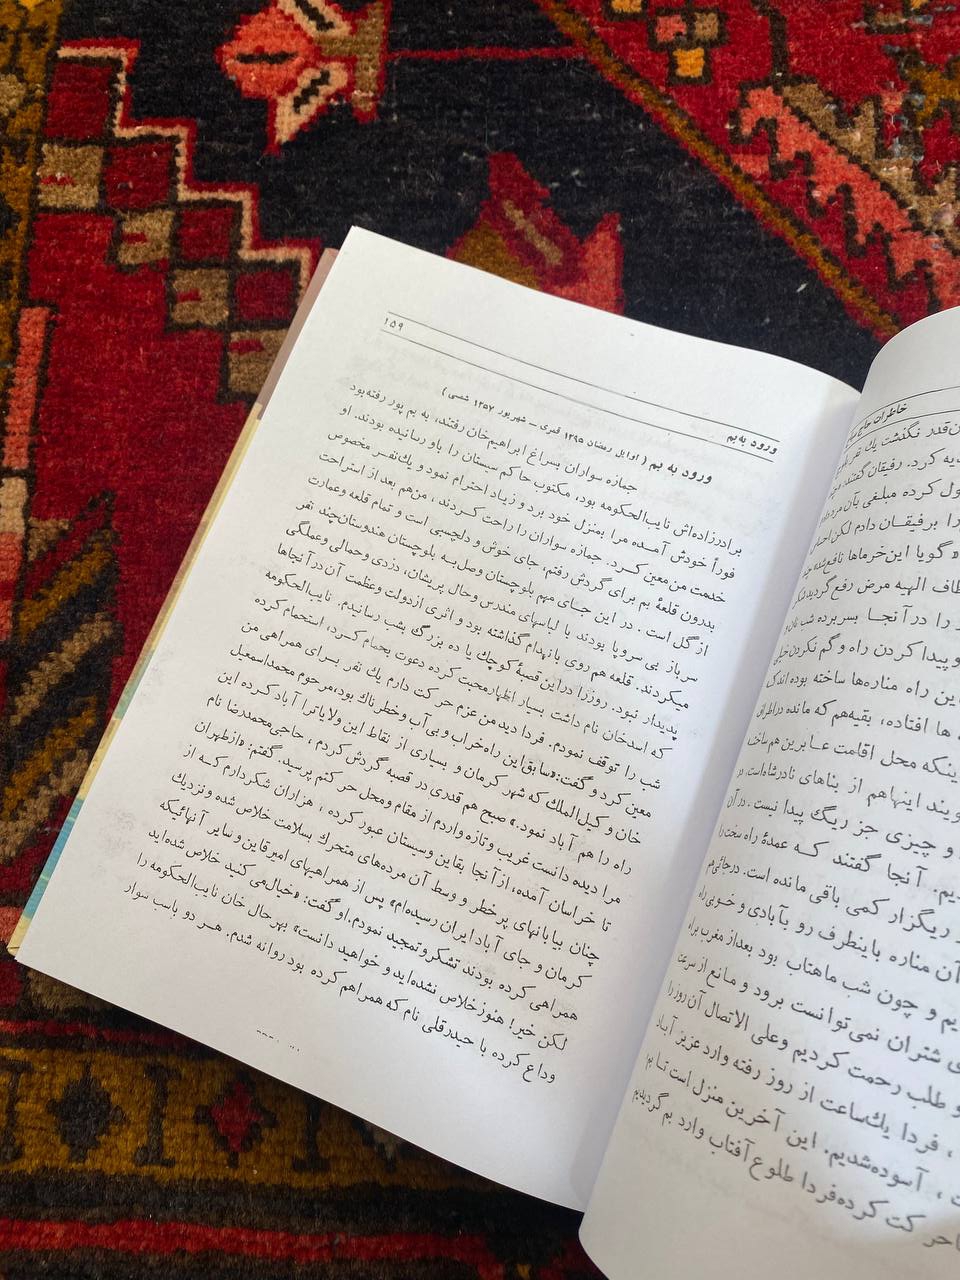 خاطرات حاج
قدر نگذشت یک نفر
یه کرد. رفیقان گفتند
ول کرده مبلغی بآن مرد
را برفیقان دادم لکن
« گویا این خرماها نافع شده
طاف الهیه مرض رفع گردید
را در آنجا بسر برده شب
و پیدا کردن راه و گم نکردن
ین راه مناره‌ها ساخته بوده
ها افتاده، بقیه‌هم که مانده در اطراف
اینکه محل اقامت عابرین هم ساخته
ویند اینها هم از بناهای نادرشاه است. در
و چیزی جز ریگ پیدا نیست . در آن
یم. آنجا گفتند که عمدهٔ راه سخت را
ریگزار کمی باقی مانده است. در جائی هم
آن مناره باینطرف رو بآبادی و خوبی راه
یم و چون شب ماهتاب بود بعد از مغرب براه
ی شتران نمی‌توانست برود و مانع از سرعت
و طلب رحمت کردیم و علی الاتصال آن روز را
، فردا یک‌ساعت از روز رفته وارد عزیز آباد
، آسوده شدیم. این آخرین منزل است تا بم
حرکت کرده فردا طلوع آفتاب وارد بم گردیدیم
ورود به بم ۱۵۹
ورود به بم ( اوایل رمضان ۱۲۹۵ قمری ــ شهریور ۱۲۵۷ شمسی )
جمازه سواران بسراغ ابراهیم‌خان رفتند، به بم پور رفته بود
برادرزاده‌اش نایب‌الحکومه بود، مکتوب حاکم سیستان را باو رسانیده بودند. او
فوراً خودش آمده مرا بمنزل خود برد و زیاد احترام نمود و یک‌نفر مخصوص
خدمت من معین کرد. جمازه سواران را راحت کردند ، من‌هم بعد از استراحت
بدرون قلعهٔ بم برای گردش رفتم، جای خوش و دلچسبی است و تمام قلعه و عمارت
از گل است . در این جای مهم بلوچستان وصل به بلوچستان هندوستان چند نفر
سرباز بی سروپا بودند با لباسهای مندرس و حال پریشان، دزدی و حمالی و عملگی
میکردند. قلعه هم روی بانهدام گذاشته بود و اثری از دولت و عظمت آن در آنجاها
پدیدار نبود. روز را در این قصبهٔ کوچک یا ده بزرگ بشب رسانیدم. نایب‌الحکومه
که اسدخان نام داشت بسیار اظهار محبت کرده دعوت بحمام کرد، استحمام کرده
شب را توقف نمودم. فردا دید من عزم حرکت دارم یک نفر برای همراهی من
معین کرد و گفت: «سابق این راه خراب و بی آب و خطرناک بود، مرحوم محمداسمعیل
خان وکیل‌الملک که شهر کرمان و بسیاری از نقاط این ولایات را آباد کرده این
راه را هم آباد نمود.» صبح هم قدری در قصبه گردش کردم ، حاجی محمدرضا نام
مرا دیده دانست غریب و تازه واردم از مقام و محل حرکتم پرسید. گفتم: «از طهران
تا خراسان آمده، از آنجا بقاین و سیستان عبور کرده ، هزاران شکر دارم که از
چنان بیابانهای پرخطر و وسط آن مرده‌های متحرک بسلامت خلاص شده و نزدیک
کرمان و جای آباد ایران رسیده‌ام» پس از همراهیهای امیر قاین و سایر آنهائیکه
همراهی کرده بودند تشکر و تمجید نمودم. او گفت: «خیال می کنید خلاص شده‌اید
لکن خیر! هنوز خلاص نشده‌اید و خواهید دانست» بهر حال خان نایب‌الحکومه را
وداع کرده با حیدرقلی نام که همراهم کرده بود روانه شدم. هر دو باسب سوار